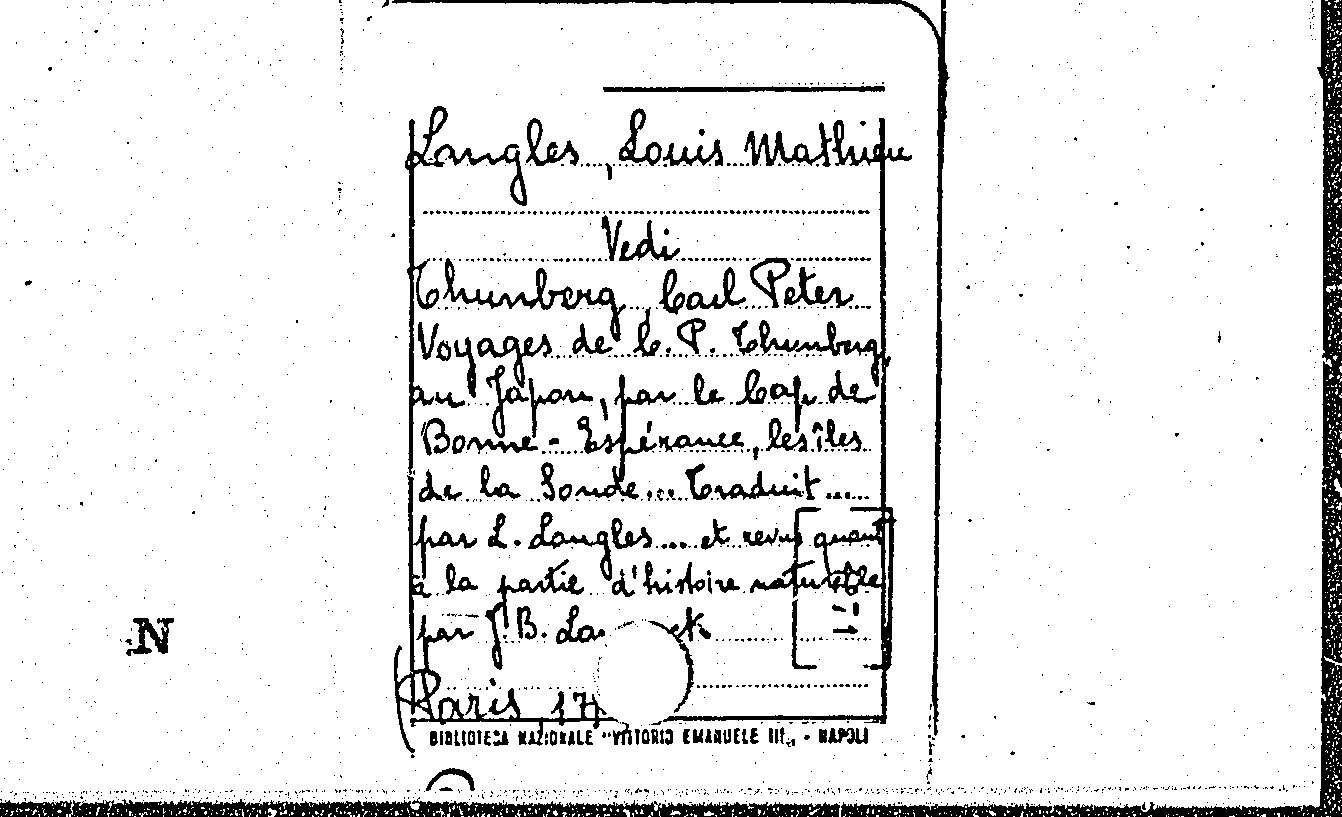 Langles, Louis Mathieu
Vedi
Thunberg, Carl Peter
Voyages de C. P. Thunberg,
au Japon, par le Cap de
Bonne-Espérance, les îles
de la Sonde... Traduit...
par L. Langles... et revu quant
à la partie d'histoire naturelle
par J. B.
Paris, 17
BIBLIOTECA NAZIONALE "VITTORIO EMANUELE III" - NAPOLI
N